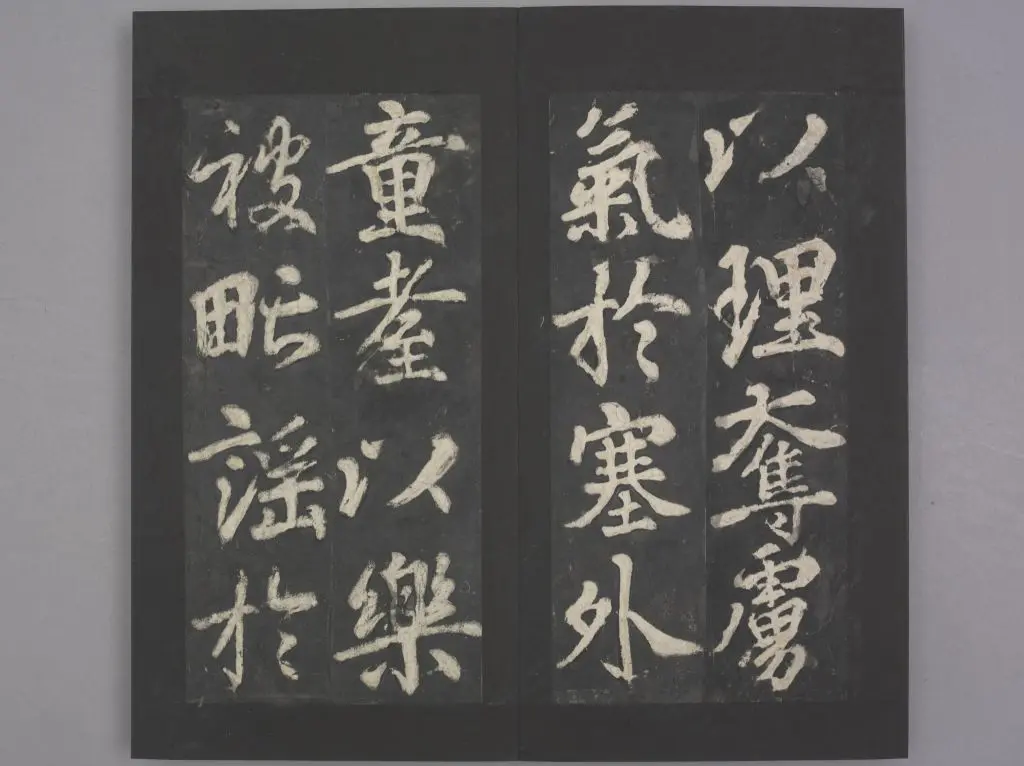 以理奪虜
氣於塞外
童耋以樂
被甿謡於